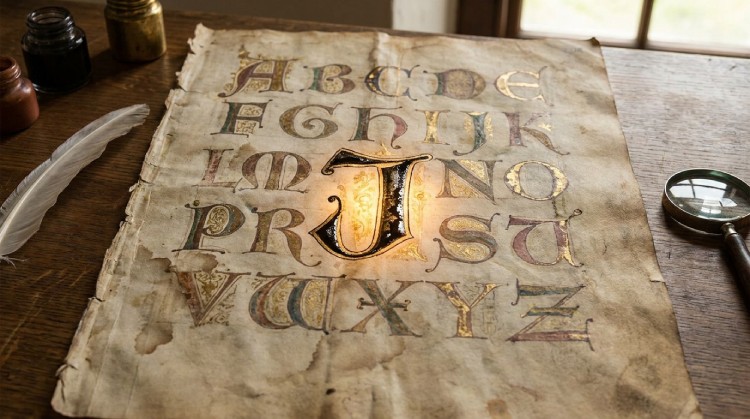 A B C D E
F G h I J K
L M J N O
P R S U
V W X Y Z